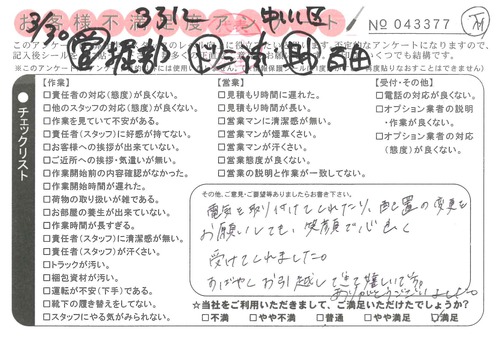 お客様不満足度アンケート
3/30
中川区
No 043377
このアンケートは
記入後シール
【作業】
□責任者の対応(態度)が良くない。
□他のスタッフの対応(態度)が良くない。
□作業を見ていて不安がある。
□責任者(スタッフ)に好感が持てない。
□お客様への挨拶が出来ていない。
□ご近所への挨拶・気遣いが無い。
□作業開始前の内容確認がなかった。
□作業開始時間が遅れた。
□荷物の取り扱いが雑である。
□お部屋の養生が出来ていない。
□作業時間が長すぎる。
□責任者(スタッフ)に清潔感が無い。
□責任者(スタッフ)が汗くさい。
□トラックが汚い。
□梱包資材が汚い。
□運転が不安(下手)である。
□靴下の履き替えをしてない。
□スタッフにやる気がみられない。
●チェックリスト
【営業】
□見積もり時間に遅れた。
□見積もり時間が長い。
□営業マンに清潔感が無い。
□営業マンが煙草くさい。
□営業マンが汗くさい。
□営業態度が良くない。
□営業の説明と作業が一致してない。
【受付・その他】
□電話の対応が良くない。
□オプション業者の説明
・作業が良くない。
□オプション業者の対応
(態度)が良くない。
その他、ご意見・ご要望等ありましたらお書き下さい。
電気を取り付けてくれたり、配置の変更を
お願いしても、笑顔で心良く
受けてくれました。
すばやくお引越しできて嬉しいです。
ありがとうございました。
☆当社をご利用いただきまして、ご満足いただけたでしょうか?
□不満 □やや不満 □普通 □やや満足 ☑満足